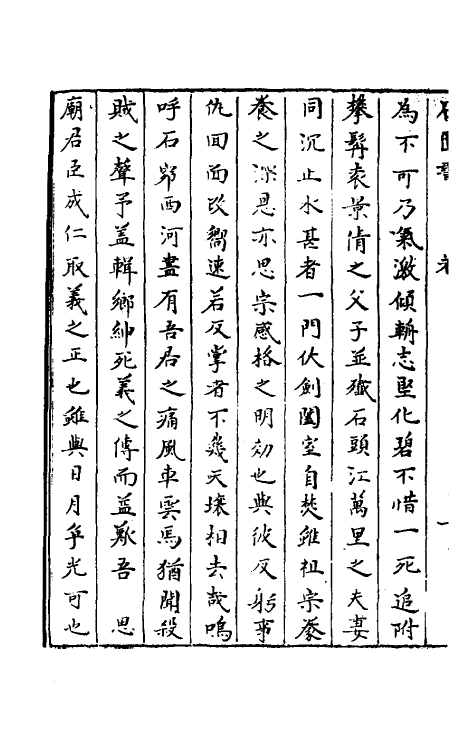 石匱書　　卷
為不可乃氣激傾輈志堅化碧不惜一死追附
攀髯袁景倩之父子並殲石頭江萬里之夫妻
同沉止水甚者一門伏劍闔室自焚雖祖宗豢
養之深恩亦思宗感格之明効也與彼反躬事
仇回面改嚮速若反掌者不幾天壤相去哉嗚
呼石郭西河盡有吾君之痛風車雲馬猶聞殺
賊之聲予蓋輯鄉紳死義之傳而益歎吾　思
廟君臣成仁取義之正也雖與日月爭光可也